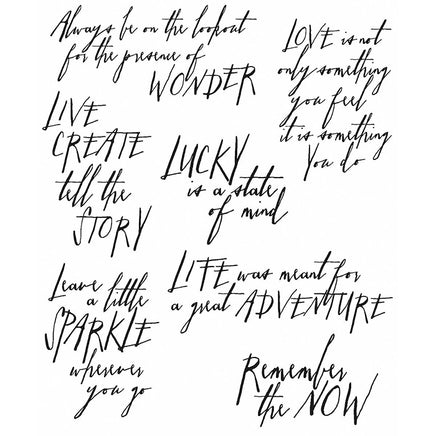 Always be on the lookout
for the presence of
WONDER
LOVE is not
only something
you feel
it is something
you do
LIVE
CREATE
tell the
STORY
LUCKY
is a state
of mind
LIFE was meant for
a great ADVENTURE
Leave
a little
SPARKLE
wherever
you go
Remember
the NOW